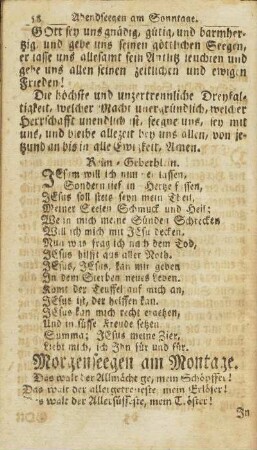 58. Abendseegen am Sonntage.
GOtt sey uns gnädig, gütig, und barmher-
tzig, und gebe uns seinen göttlichen Seegen,
er lasse uns allesamt sein Antlitz leuchten und
gebe uns allen seinen zeitlichen und ewigen
Frieden!
Die höchste und unzertrennliche Dreyfal-
tigkeit, welcher Macht unergründlich, welcher
Herrschafft unendlich ist, seegne uns, sey mit
uns, und bleibe allezeit bey uns allen, von je-
tzund an bis in alle Ewigkeit, Amen.
Reim-Gebethlein.
JEsum will ich nun lassen,
Sondern tief in Hertze fassen,
JEsus soll stets seyn mein Theil,
Meiner Seelen Schmuck und Heil;
Wenn mich meine Sünden Schrecken
Will ich mich mit JEsu decken.
Nun was frag ich nach dem Tod,
JEsus hilfft aus aller Noth.
JEsus, JEsus, kan mir geben
In dem Sterben neues Leben.
Komt der Teuffel auf mich an,
JEsus ist, der helffen kan.
JEsus kan mich recht ergetzen,
Und in süsse Freude setzen
Summa; JEsus meine Zier,
Liebt mich, ich Ihn für und für.
Morgenseegen am Montage.
Das walt der Allmächtige, mein Schöpffer!
Das walt der allergetreueste, mein Erlöser!
Das walt der Allersüsseste, mein Tröster!
In